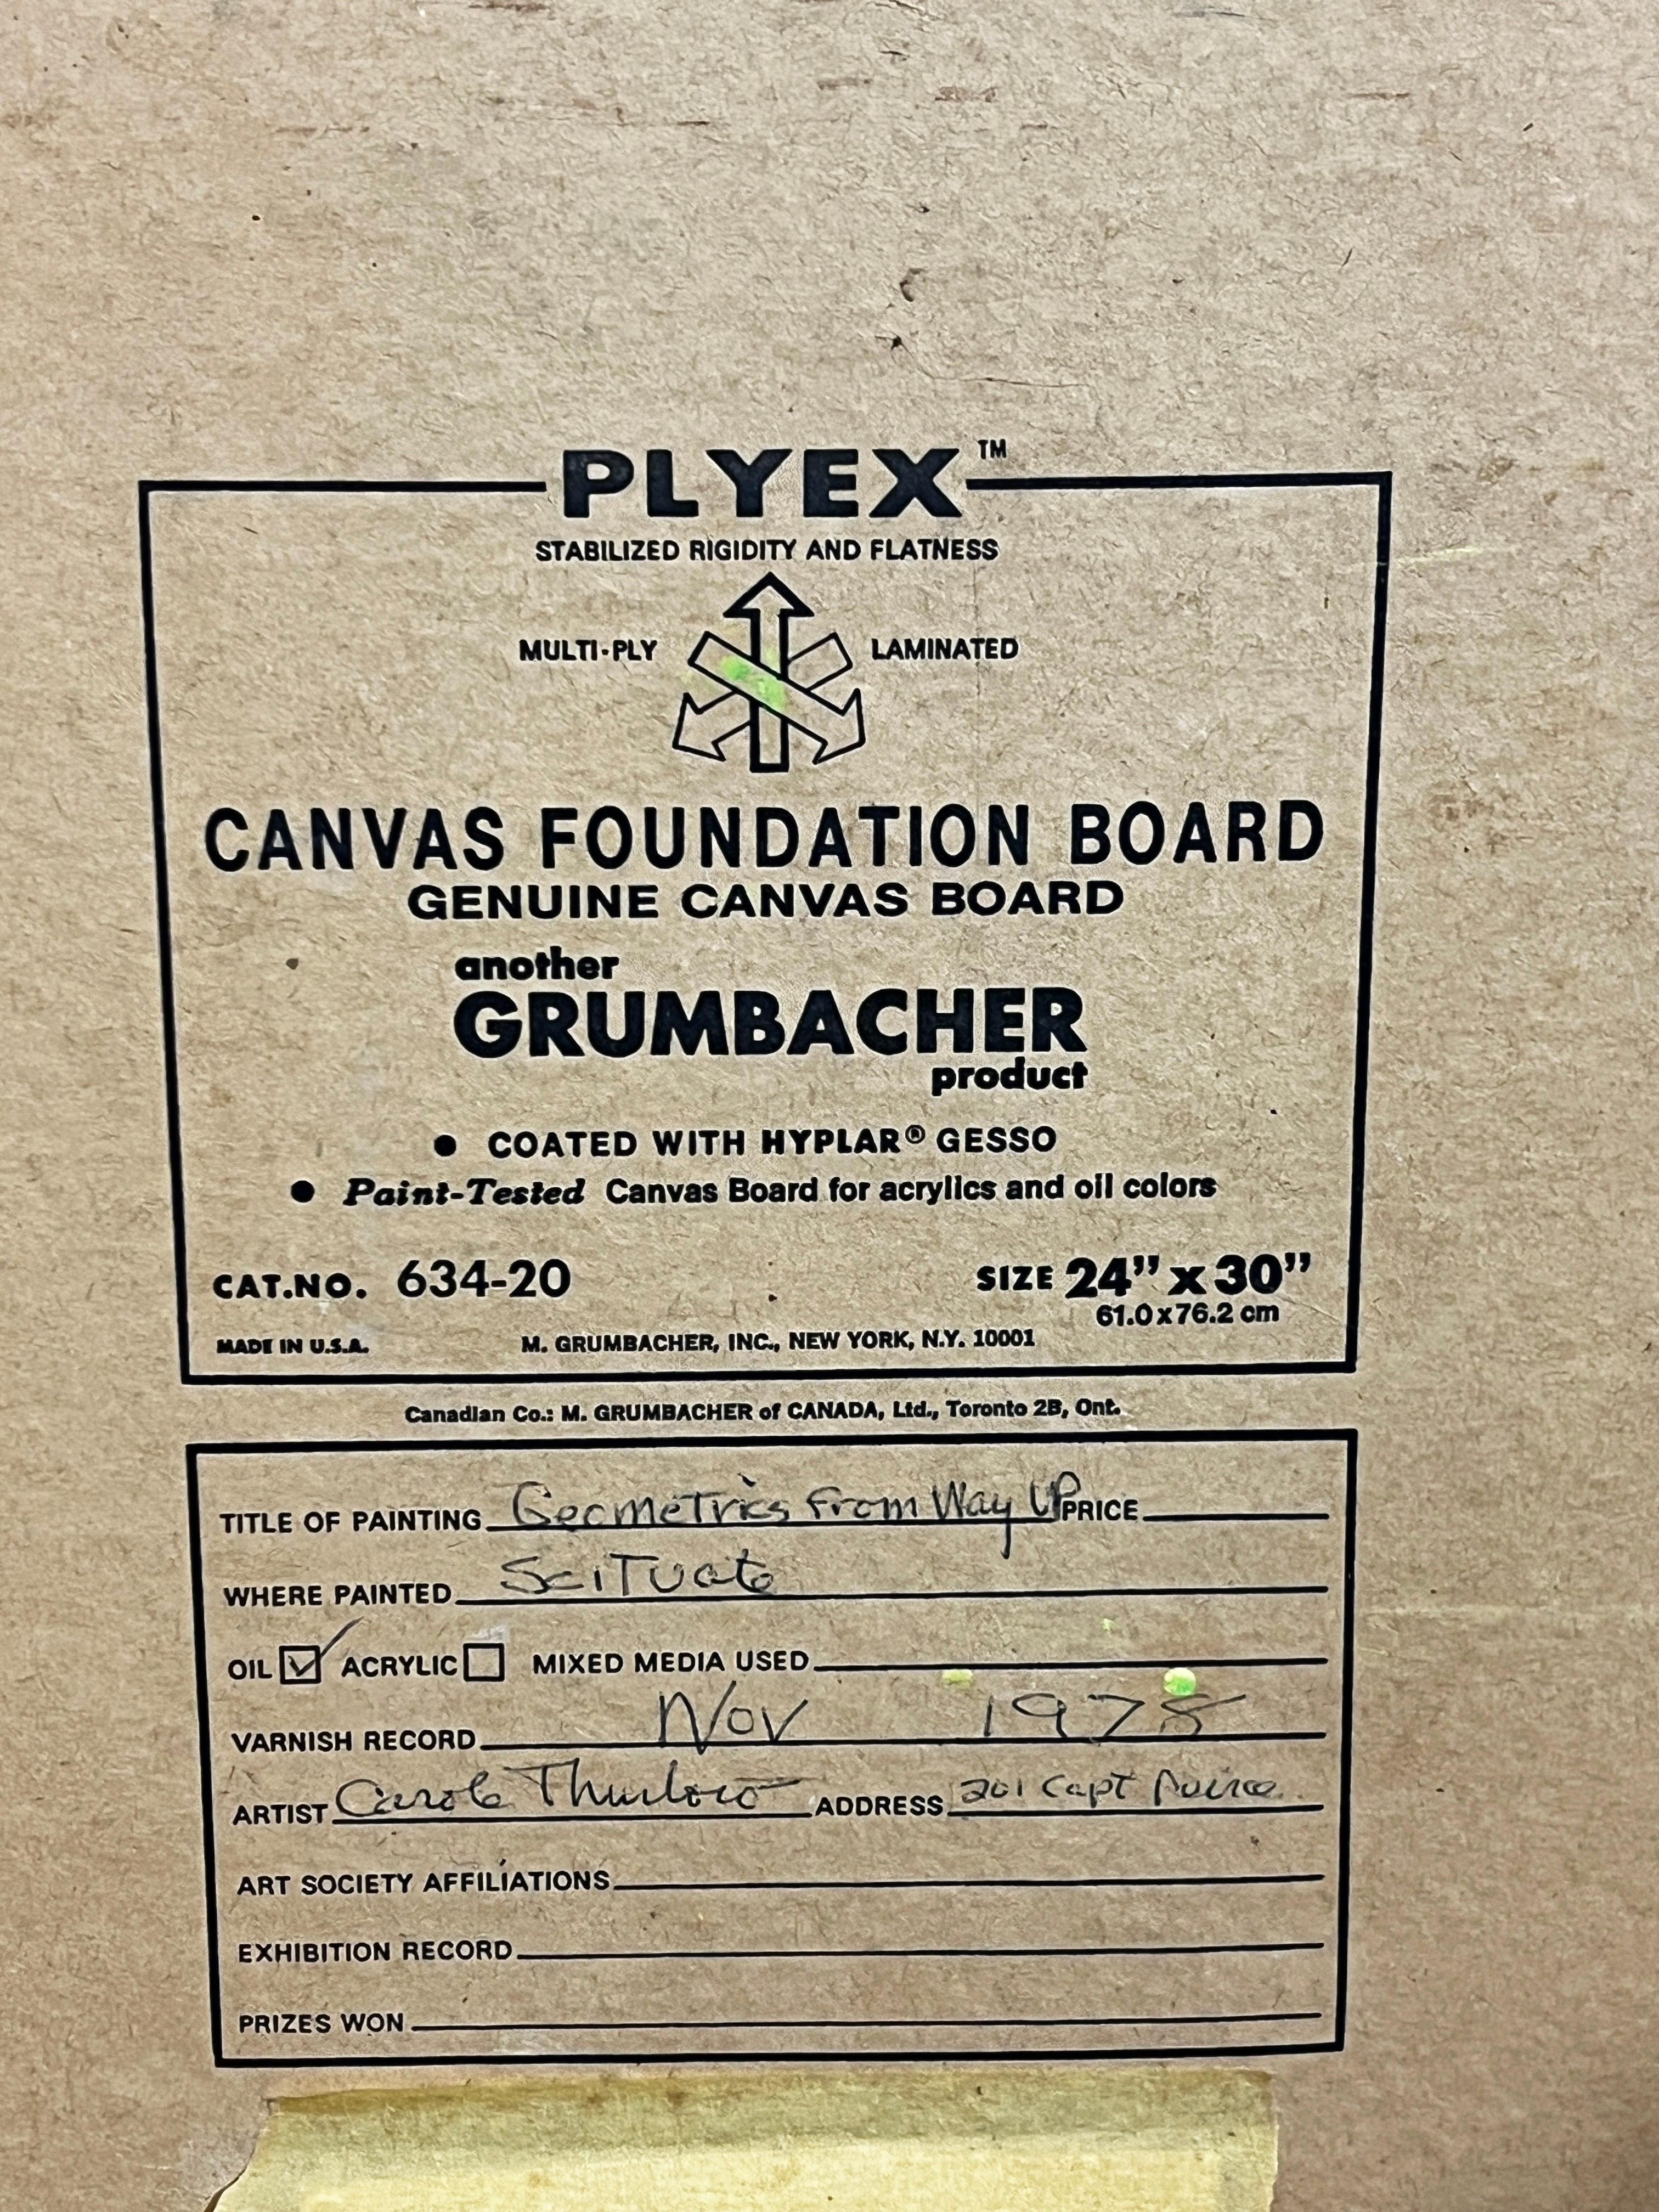 PLYEX™
STABILIZED RIGIDITY AND FLATNESS
MULTI-PLY LAMINATED
CANVAS FOUNDATION BOARD
GENUINE CANVAS BOARD
another
GRUMBACHER
product
• COATED WITH HYPLAR® GESSO
• Paint-Tested Canvas Board for acrylics and oil colors
CAT.NO. 634-20 SIZE 24" x 30"
61.0 x 76.2 cm
MADE IN U.S.A. M. GRUMBACHER, INC., NEW YORK, N.Y. 10001
Canadian Co.: M. GRUMBACHER of CANADA, Ltd., Toronto 2B, Ont.
TITLE OF PAINTING Geometrics From Way UP PRICE
WHERE PAINTED Scituate
OIL ACRYLIC MIXED MEDIA USED
VARNISH RECORD Nov 1978
ARTIST Carole Thurlow ADDRESS 201 Capt Peirce
ART SOCIETY AFFILIATIONS
EXHIBITION RECORD
PRIZES WON